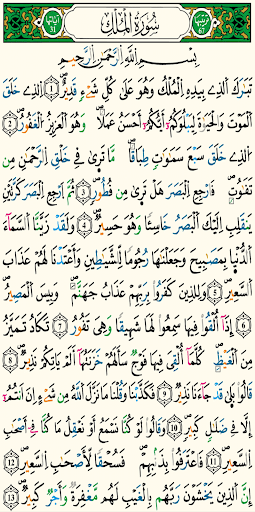 ترتيبها 67 سُورَةُ الْمُلْكِ آياتها 31
بِسْمِ اللَّهِ الرَّحْمَٰنِ الرَّحِيمِ
تَبَٰرَكَ الذِے بِيَدِهِ الْمُلْكُ وَهُوَ عَلَىٰ كُلِّ شَےْءٖ قَدِيرٌ ١ الذِے خَلَقَ
الْمَوْتَ وَالْحَيَوٰةَ لِيَبْلُوَكُمُۥٓ أَيُّكُمُۥٓ أَحْسَنُ عَمَلاٗ وَهُوَ الْعَزِيزُ الْغَفُورُ ٢
الذِے خَلَقَ سَبْعَ سَمَٰوَٰتٖ طِبَاقاٗ مَّا تَرَىٰ فِے خَلْقِ الرَّحْمَٰنِ مِن
تَفَٰوُتٖ فَارْجِعِ الْبَصَرَ هَلْ تَرَىٰ مِن فُطُورٖ ٣ ثُمَّ اَرْجِعِ الْبَصَرَ كَرَّتَيْنِ
يَنقَلِبِ اِلَيْكَ الْبَصَرُ خَاسِئاٗ وَهُوَ حَسِيرٌ ٤ وَلَقَدْ زَيَّنَّا السَّمَآءَ
الدُّنْيَا بِمَصَٰبِيحَ وَجَعَلْنَٰهَا رُجُوماٗ لِّلشَّيَٰطِينِ وَأَعْتَدْنَا لَهُمْ عَذَابَ
السَّعِيرِ ٥ وَلِلذِينَ كَفَرُواْ بِرَبِّهِمْ عَذَابُ جَهَنَّمَ وَبِيسَ الْمَصِيرُ
٦ إِذَآ أُلْقُواْ فِيهَا سَمِعُواْ لَهَا شَهِيقاٗ وَهِيَ تَفُورُ ٧ تَكَادُ تَمَيَّزُ
مِنَ الْغَيْظِ كُلَّمَآ أُلْقِيَ فِيهَا فَوْجٞ سَأَلَهُمْ خَزَنَتُهَآ أَلَمْ يَاتِكُمْ نَذِيرٞ ٨
قَالُواْ بَلَىٰ قَدْ جَآءَنَا نَذِيرٞ ٩ فَكَذَّبْنَا وَقُلْنَا مَا نَزَّلَ اللَّهُ مِن شَےْءٍ إِنَ اَنتُمُۥٓ
إِلَّا فِے ضَلَٰلٖ كَبِيرٖ ١٠ وَقَالُواْ لَوْ كُنَّا نَسْمَعُ أَوْ نَعْقِلُ مَا كُنَّا فِےٓ أَصْحَٰبِ
السَّعِيرِ ١١ فَاعْتَرَفُواْ بِذَنۢبِهِمْ فَسُحْقاٗ لِّأَصْحَٰبِ السَّعِيرِ ١٢
إِنَّ الذِينَ يَخْشَوْنَ رَبَّهُم بِالْغَيْبِ لَهُم مَّغْفِرَةٞ وَأَجْرٞ كَبِيرٞ ١٣